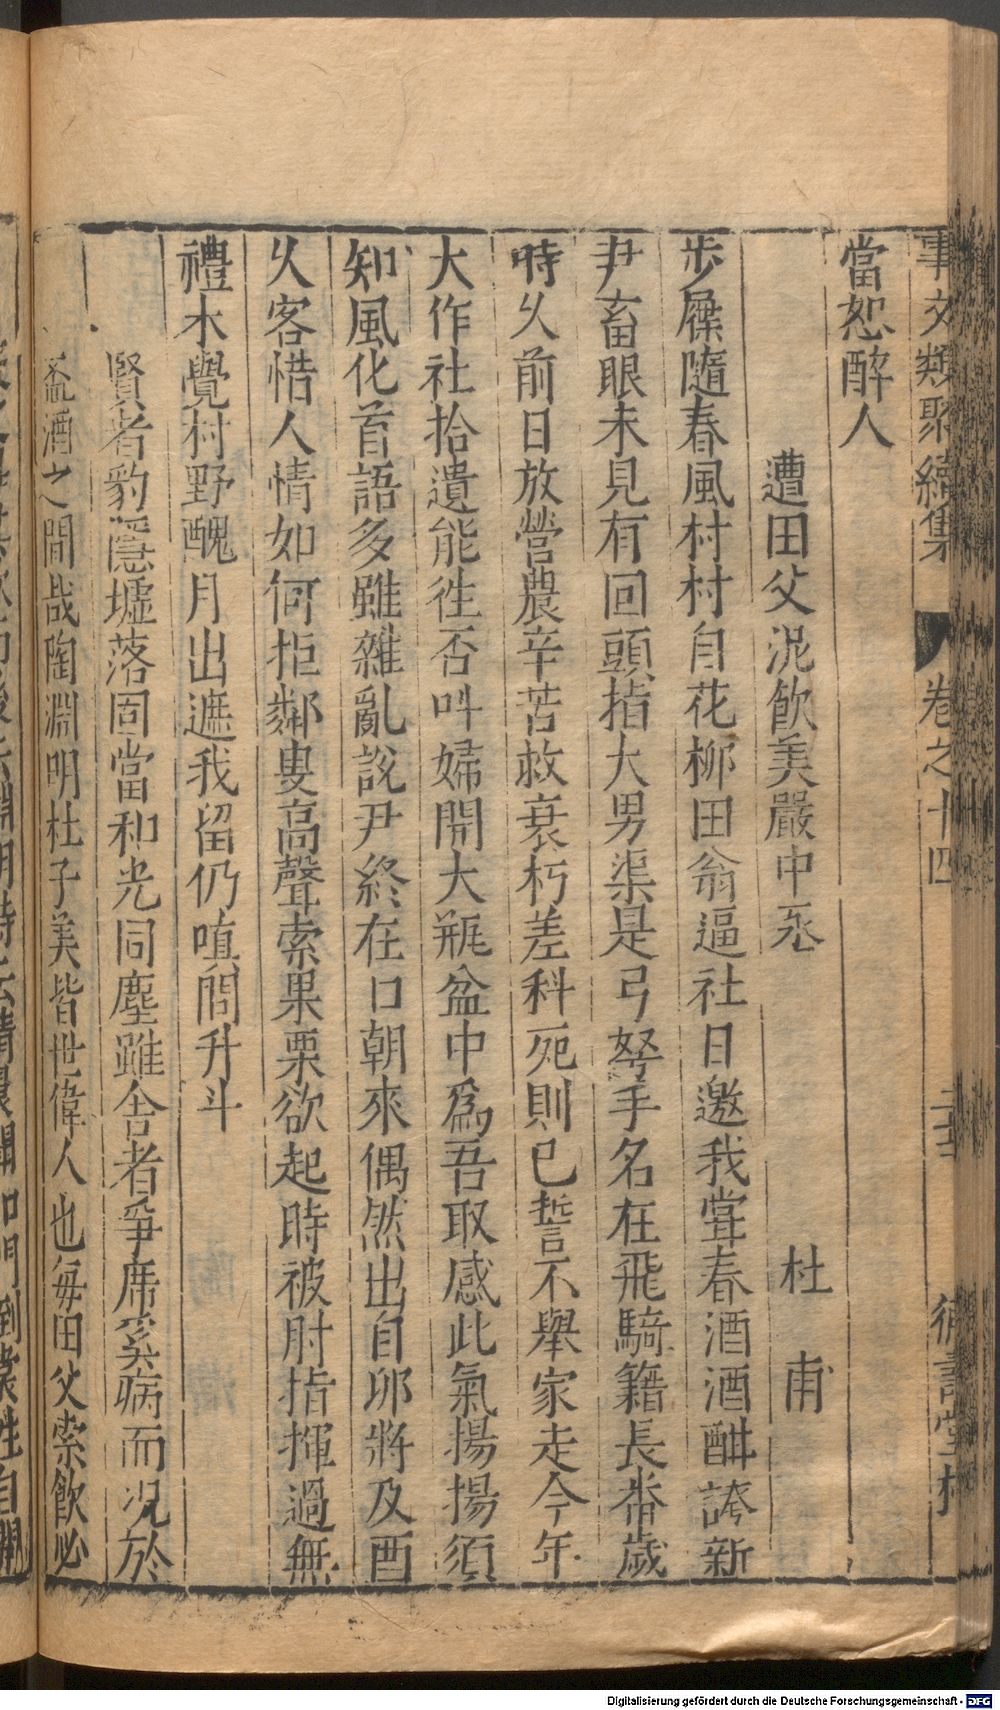 事文類聚續集 卷之十四
當恕醉人
遭田父泥飲美嚴中丞 杜甫
步屧隨春風村村自花柳田翁逼社日邀我嘗春酒酒酣誇新
尹畜眼未見有回頭指大男渠是弓弩手名在飛騎籍長番歲
時乆前日放營農辛苦救衰朽差科死則已誓不舉家走今年
大作社拾遺能徃否呌婦開大瓶盆中爲吾取感此氣揚揚須
知風化首語多雖雜亂說尹終在口朝來偶然出自夘將及酉
乆客惜人情如何拒鄰叟高聲索果栗欲起時被肘指揮過無
禮未覺村野醜月出遮我留仍嗔問升斗
賢者豹隱墟落固當和光同塵雖舍者爭席奚病而况於
盃酒之間哉陶淵明杜子美皆世偉人也每田父索飲必
Digitalisierung gefördert durch die Deutsche Forschungsgemeinschaft - DFG